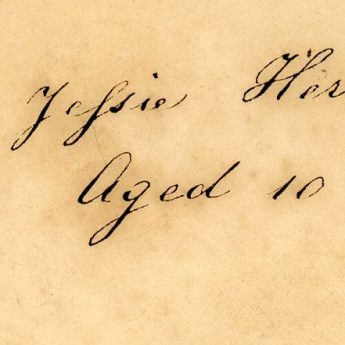 Jeſsie Her
Aged 10